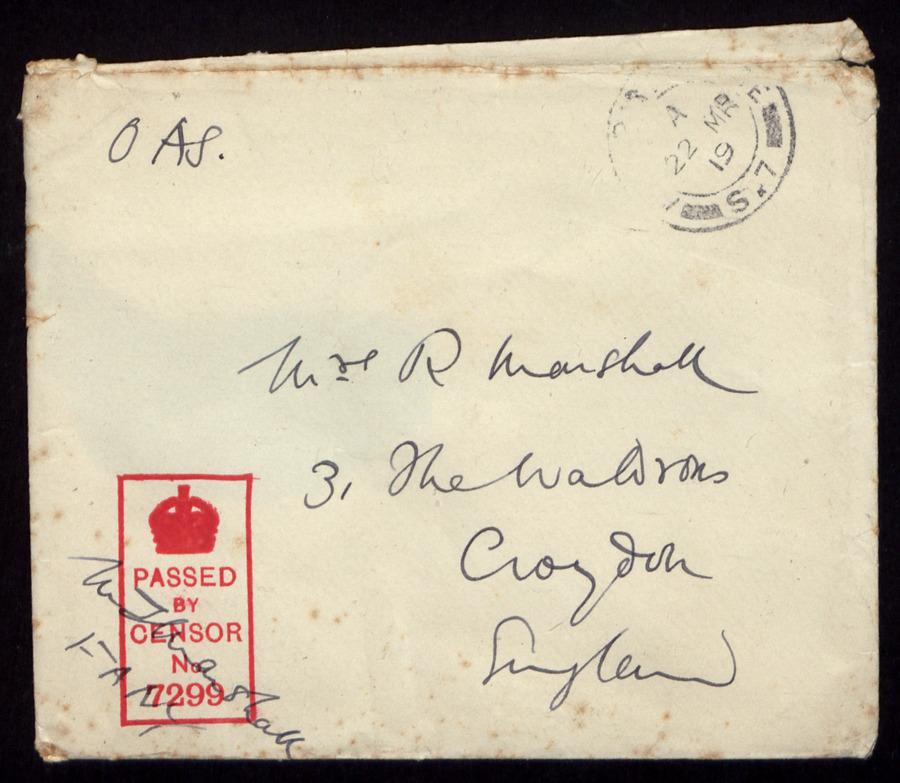 O AS.
A
22 MR
19
S.7
Mrs R Marshall
3, The Waldrons
Croydon
England
PASSED
BY
CENSOR
No
7299
Marshall